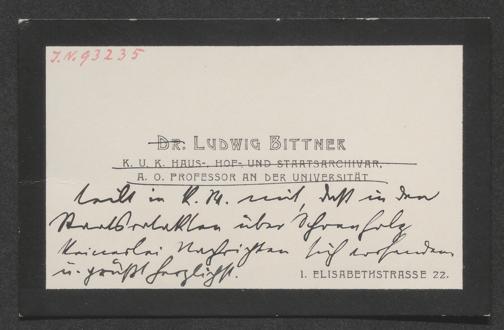 J.N. 93235
DR. LUDWIG BITTNER
K. U. K. HAUS-, HOF- UND STAATSARCHIVAR,
A. O. PROFESSOR AN DER UNIVERSITÄT
teilt in K. mit, daß in den
Staatsratakten über
keinerlei Nachrichten sich
u. grüßt herzlichst.
I. ELISABETHSTRASSE 22.